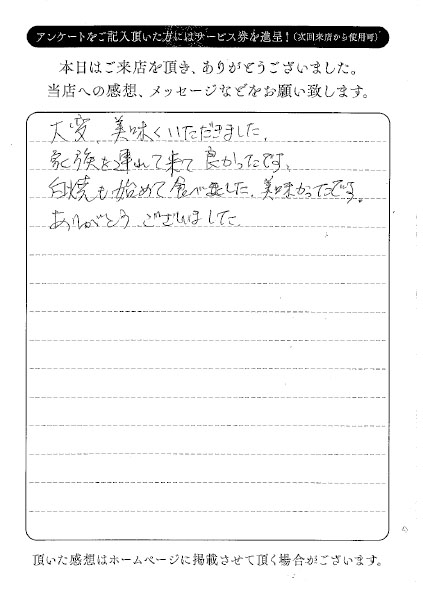 アンケートをご記入頂いた方にはサービス券を進呈！（次回来店から使用可）
本日はご来店を頂き、ありがとうございました。
当店への感想、メッセージなどをお願い致します。
大変、美味くいただきました、
家族を連れて来て良かったです、
白焼も始めて食べました、美味かったです。
ありがとうございました、
頂いた感想はホームページに掲載させて頂く場合がございます。